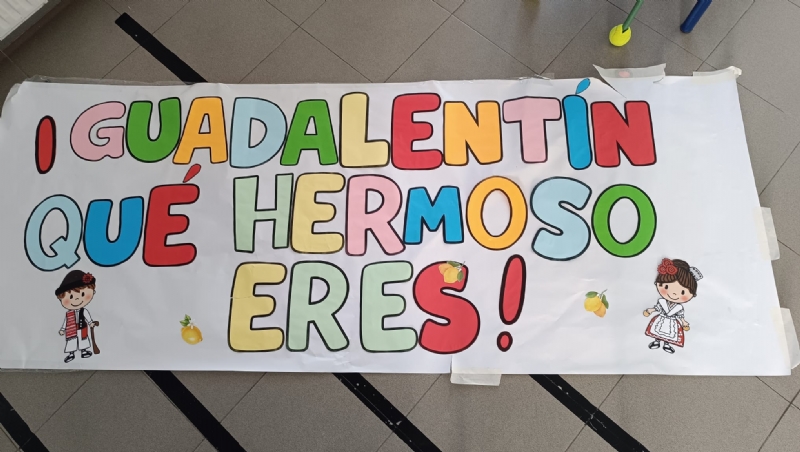 ¡GUADALENTÍN
QUÉ HERMOSO
ERES!